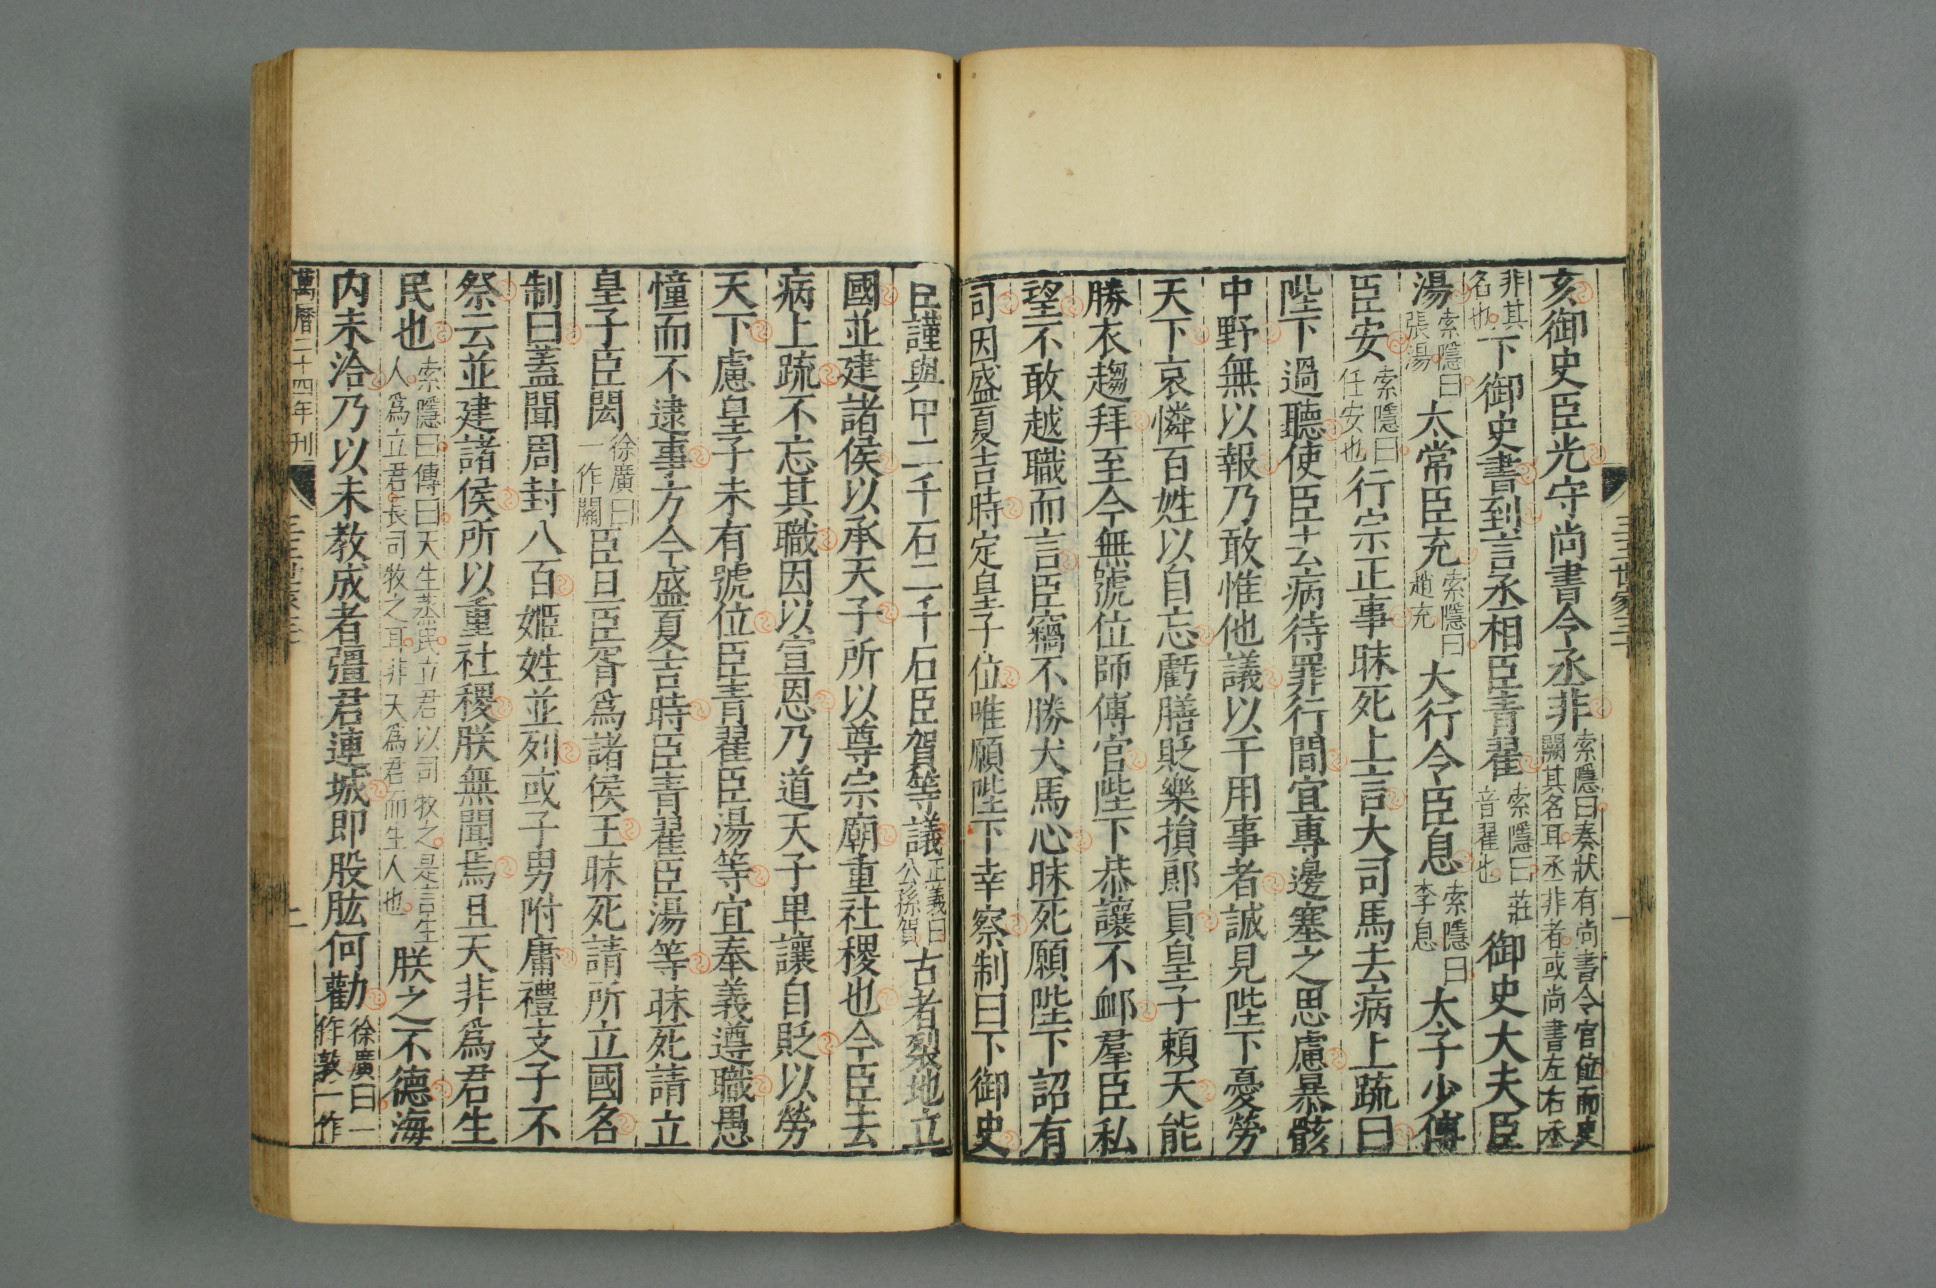 三王世家三十
一
亥御史臣光守尚書令丞非索隱曰奏狀有尚書令官位而史闕其名耳丞非者或尚書左右丞
非其名也下御史書到言丞相臣青翟索隱曰莊青翟也御史大夫臣
湯索隱曰張湯太常臣充索隱曰趙充大行令臣息索隱曰李息太子少傅
臣安索隱曰任安也行宗正事昧死上言大司馬去病上疏曰
陛下過聽使臣去病待罪行間宜專邊塞之思慮暴骸
中野無以報乃敢惟他議以干用事者誠見陛下憂勞
天下哀憐百姓以自忘虧膳貶樂損郎員皇子賴天能
勝衣趨拜至今無號位師傅官陛下恭讓不卹羣臣私
望不敢越職而言臣竊不勝犬馬心昧死願陛下詔有
司因盛夏吉時定皇子位唯願陛下幸察制曰下御史
臣謹與中二千石二千石臣賀等議正義曰公孫賀古者裂地立
國並建諸侯以承天子所以尊宗廟重社稷也今臣去
病上疏不忘其職因以宣恩乃道天子卑讓自貶以勞
天下慮皇子未有號位臣青翟臣湯等宜奉義遵職愚
憧而不逮事方今盛夏吉時臣青翟臣湯等昧死請立
皇子臣閎徐廣曰一作關臣旦臣胥為諸侯王昧死請所立國名
制曰蓋聞周封八百姬姓並列或子男附庸禮支子不
祭云並建諸侯所以重社稷朕無聞焉且天非為君生
民也索隱曰傳曰天生蒸民立君以司牧之是言生人為立君長司牧之耳非天為君而生人也朕之不德海
内未洽乃以未教成者彊君連城即股肱何勸徐廣曰一作敦一作
萬曆二十四年刊
二